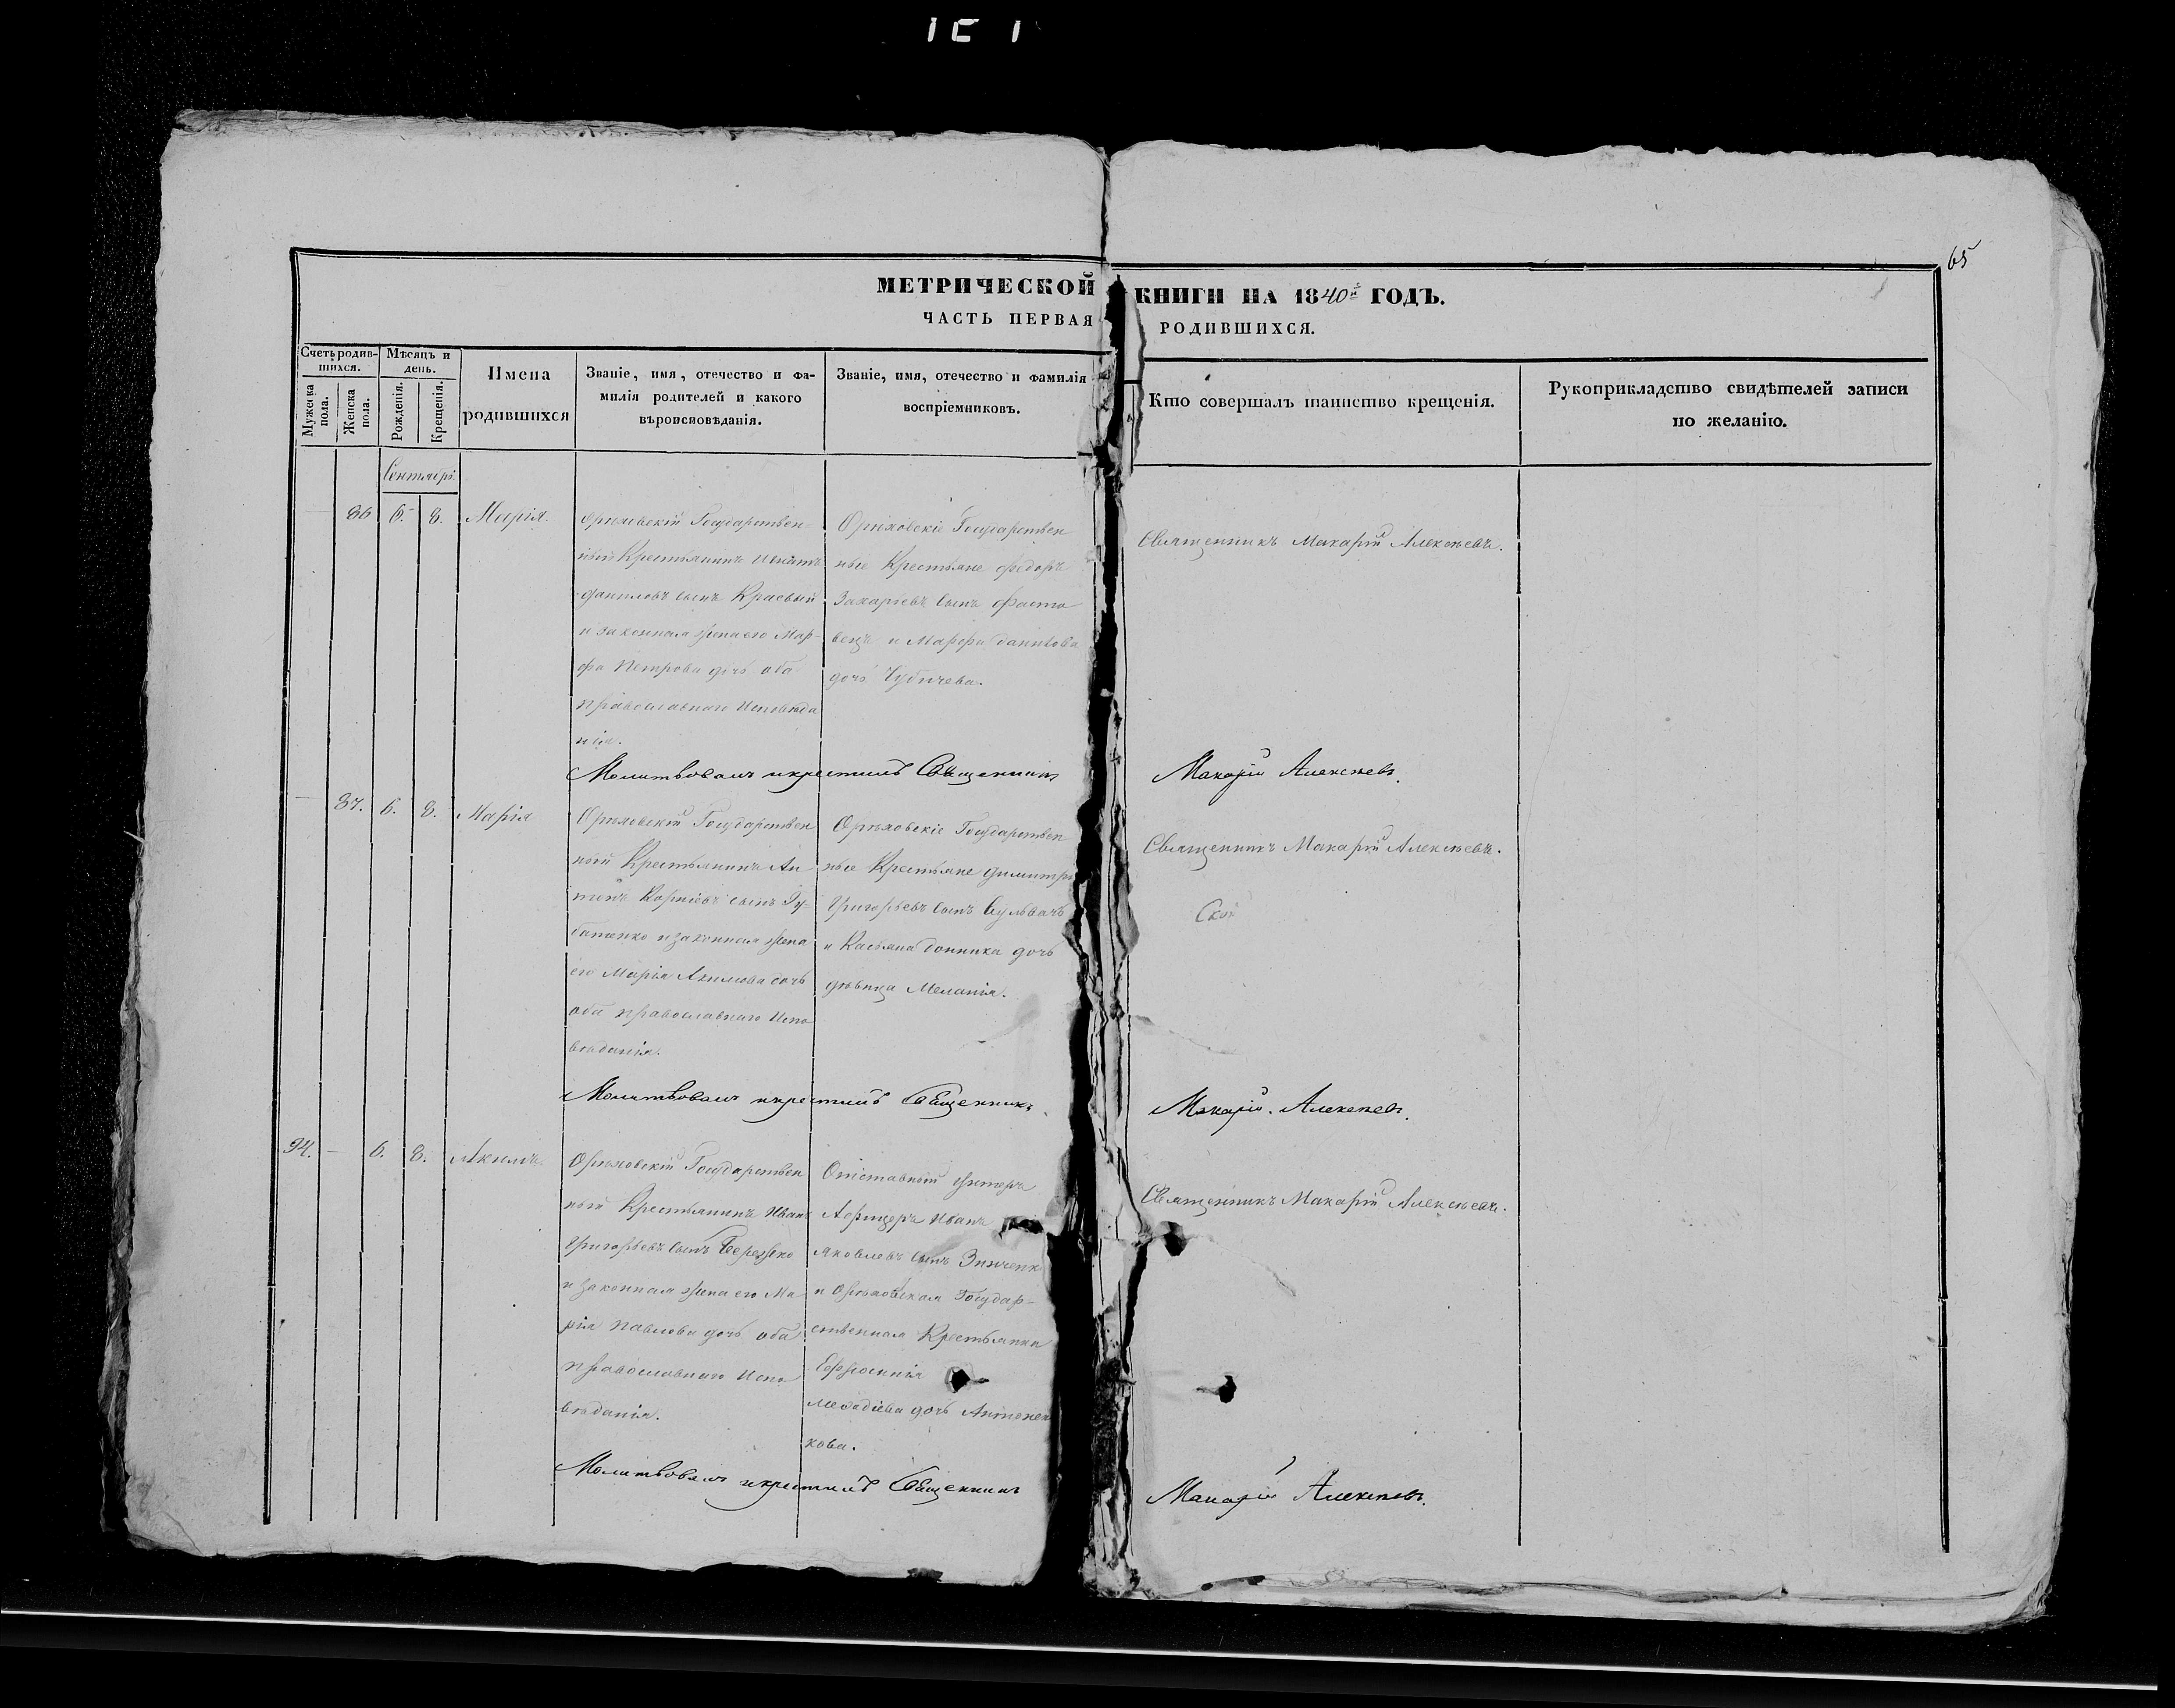 65
МЕТРИЧЕСКОЙ КНИГИ НА 1840й ГОДЪ.
ЧАСТЬ ПЕРВАЯ РОДИВШИХСЯ.
Счетъ родившихся.
Мужеска пола.
Женска пола.
Мѣсяцъ и день.
Рожденія.
Крещенія.
Имена родившихся
Званіе, имя, отечество и фамилія родителей и какого вѣроисповѣданія.
Званіе, имя, отечество и фамилія воспріемниковъ.
Кто совершалъ таинство крещенія.
Рукоприкладство свидѣтелей записи по желанію.
Сентябрь.
86 6. 8. Марія.
Орѣховскій Государствен
ный Крестьянинъ
даниловъ сынъ Красный
и законная жена его Мар-
фа Петрова дочь оба
православнаго Исповѣда
нія.
Орѣховскіе Государствен
ные Крестьяне федоръ
Захаріевъ сынъ фасто
вецъ и Марфа данилова
дочь Чубичева.
Священникъ Макарій Алексѣевъ.
Молитвовалъ и крестилъ Священникъ Макарій Алексѣевъ.
87. 6. 8. Марія
Орѣховскій Государствен
ный Крестьянинъ Ан
тонъ Корніевъ сынъ Гу-
батенко и законная жена
его Марія Акимова дочь
оба православнаго Испо
вѣданія.
Орѣховскіе Государствен
ные Крестьяне димитрі
Григорьевъ сынъ
и Касьяна донника дочь
дѣвица Меланія.
Священникъ Макарій Алексѣевъ.
Молитвовалъ и крестилъ Священникъ Макарій Алексѣевъ.
94. — 6. 8. Акимъ
Орѣховскій Государствен
ный Крестьянинъ Иванъ
Григорьевъ сынъ Бережко
и законная жена его Ма
рія Павлова дочь оба
православнаго Испо
вѣданія.
Отставный унтеръ
Афицеръ Иванъ
яковлевъ сынъ Зинченк
и Орѣховская Государ-
ственная Крестьянка
Ефросинія
мефодіева дочь Антонен
кова.
Священникъ Макарій Алексѣевъ.
Молитвовалъ и крестилъ Священникъ Макарій Алексѣевъ.